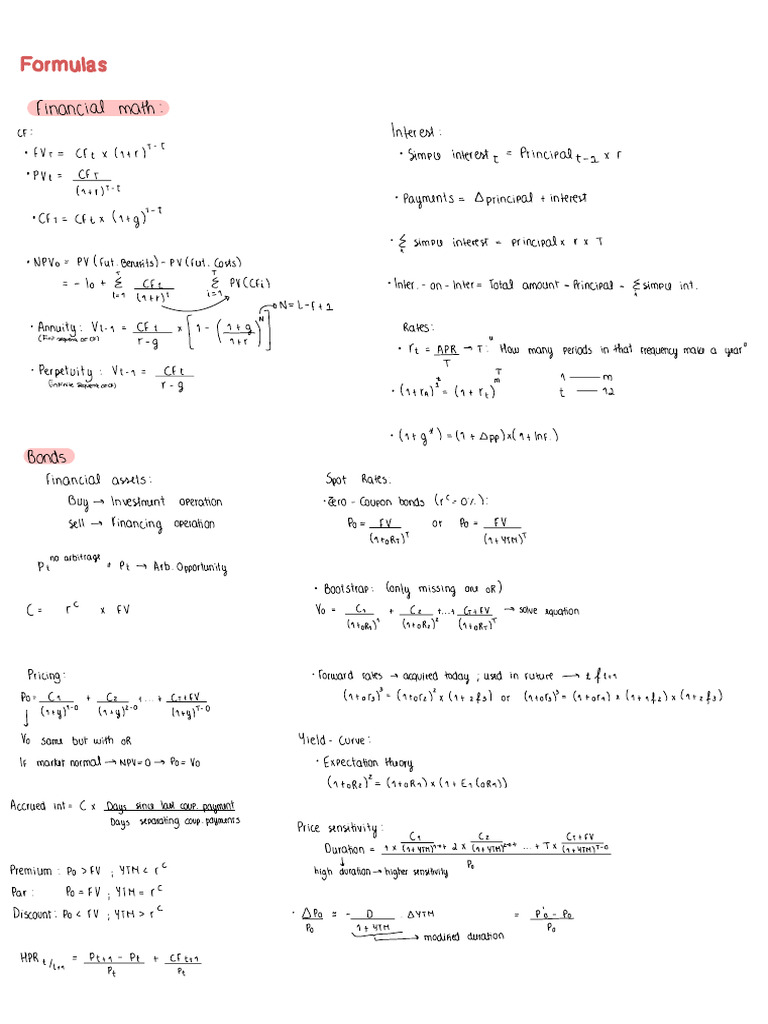 Formulas
Financial math:
CF:
• FVT = CFt x (1+r)^T-t
• PVt = CFT / (1+r)^T-t
• CFT = CFt x (1+g)^T-t
• NPV0 = PV (Fut. Benefits) - PV (Fut. Costs)
= - I0 + Σ(i=1, T) CFt / (1+r)^i Σ(i=1, T) PV(CFi)
N = L - F + 1
• Annuity: Vt-1 = CFt / r-g x [1 - ((1+g) / (1+r))^N]
• Perpetuity: Vt-1 = CFt / r-g
Interest:
• Simple interest t = Principal t-1 x r
• Payments = Δ principal + interest
• Σ simple interest = principal x r x T
• Inter.-on-Inter = Total amount - Principal - Σ simple int.
Rates:
• rt = APR / T → T: "How many periods in that frequency make a year"
• (1+rA)^1 = (1+rt)^T/m
1 — m
t — 12
• (1+g*) = (1+Δpp) x (1+Inf.)
Bonds
Financial assets:
Buy → Investment operation
Sell → Financing operation
Pt^no arbitrage ≠ Pt → Arb. Opportunity
C = r^c x FV
Pricing:
P0 = C1 / (1+y)^1-0 + C2 / (1+y)^2-0 + ... + CT+FV / (1+y)^T-0
V0 same but with 0R
If market normal → NPV=0 → P0=V0
Accrued int = C x Days since last coup. payment / Days separating coup. payments
Premium: P0 > FV ; YTM < r^c
Par: P0 = FV ; YTM = r^c
Discount: P0 < FV ; YTM > r^c
HPR t/t+1 = Pt+1 - Pt / Pt + CFt+1 / Pt
Spot Rates.
• Zero-Coupon bonds (r^c = 0%):
P0 = FV / (1+0RT)^T or P0 = FV / (1+YTM)^T
• Bootstrap: (only missing one 0R)
V0 = C1 / (1+0R1)^1 + C2 / (1+0R2)^2 + ... + CT+FV / (1+0RT)^T → solve equation
• Forward rates → acquired today ; used in future → tft+1
(1+0r3)^3 = (1+0r2)^2 x (1+2f3) or (1+0r3)^3 = (1+0r1) x (1+1f2) x (1+2f3)
Yield-Curve:
• Expectation theory
(1+0R2)^2 = (1+0R1) x (1+E1(0R1))
Price sensitivity:
Duration = 1 x C1 / (1+YTM) + 2 x C2 / (1+YTM) + ... + T x CT+FV / (1+YTM)^T-0 / P0
high duration → higher sensitivity
• ΔP0 / P0 ≈ - D / 1+YTM . ΔYTM = P'0 - P0 / P0
→ modified duration